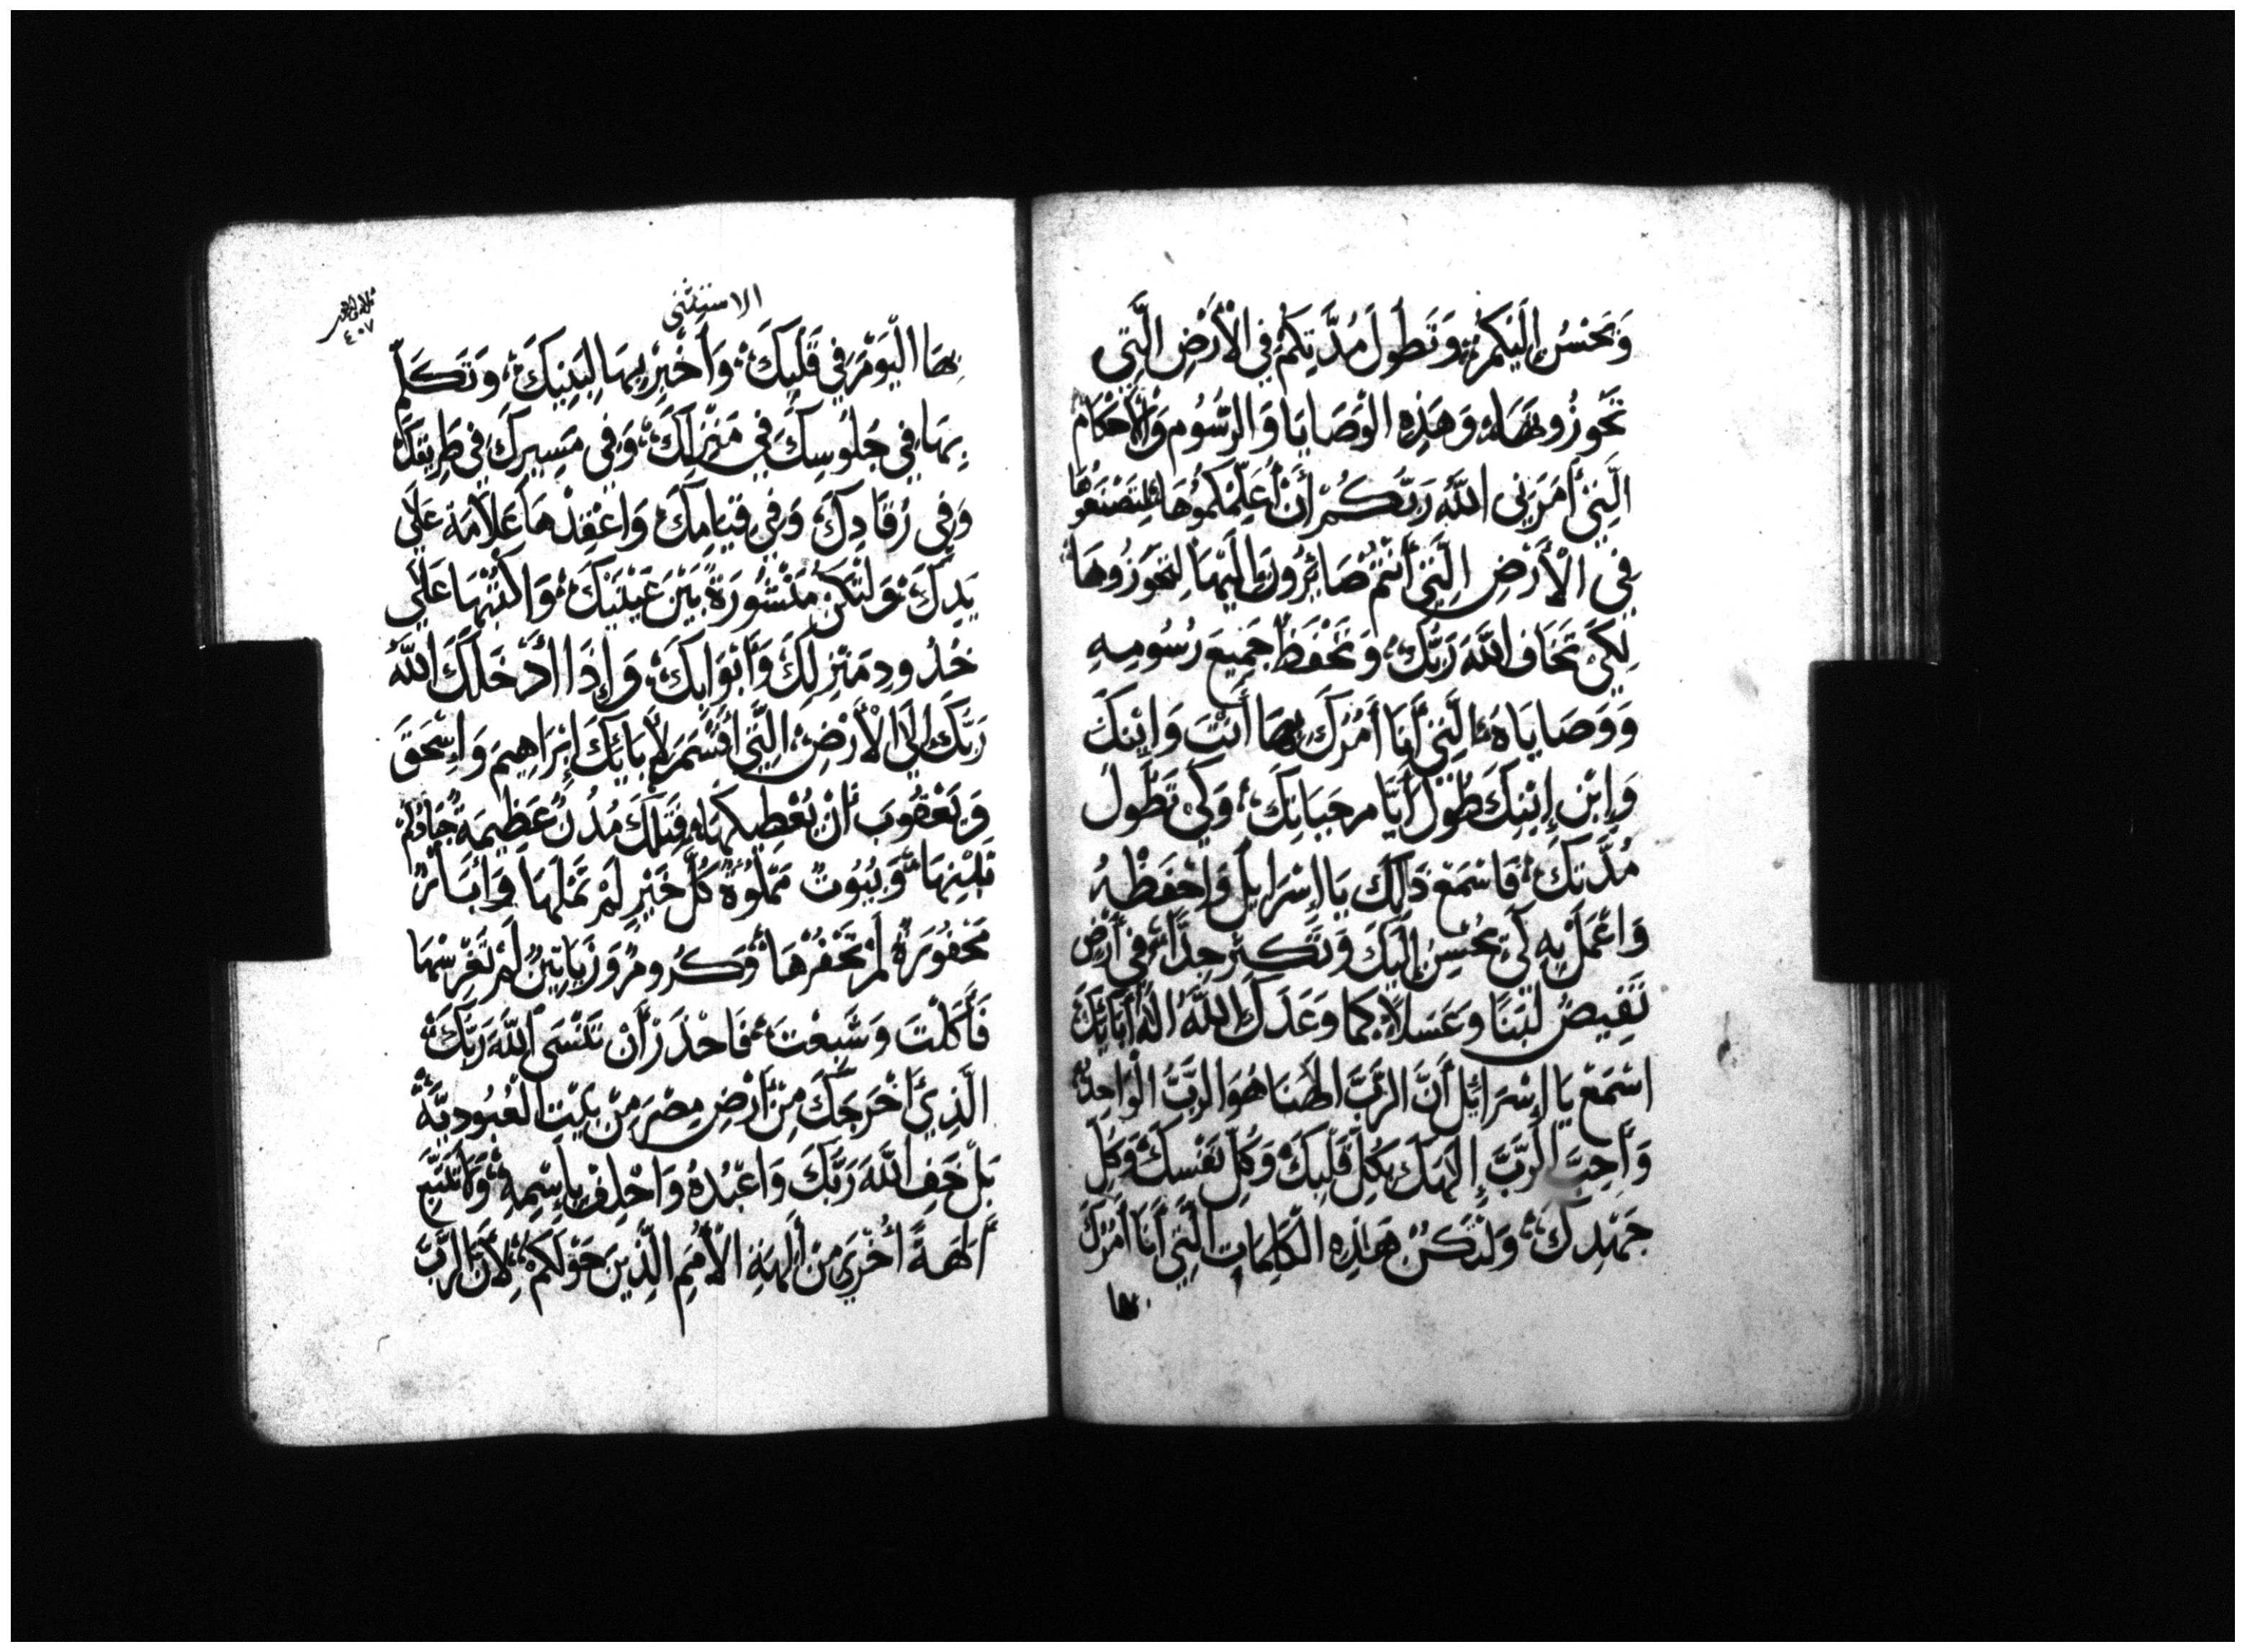 وَيَحْسُنُ إِلَيْكُمْ وَتَطُولَ مُدَّتِكُمْ فِي الْأَرْضِ الَّتِي
تَحُوزُونَهَا وَهَذِهِ الْوَصَايَا وَالرُّسُومِ وَالْأَحْكَامُ
الَّتِي أَمَرَنِي اللَّهُ رَبَّكُمْ أَنْ أُعَلِّمَكُمُوهَا لِتَصْنَعُوهَا
فِي الْأَرْضِ الَّتِي أَنْتُمْ صَائِرُونَ إِلَيْهَا لِتَحُوزُوهَا
لِكَيْ تَخَافَ اللَّهَ رَبُّكَ وَتَحْفَظَ جَمِيعَ رُسُومِهِ
وَوَصَايَاهُ الَّتِي أَنَا أَمُرُكَ بِهَا أَنْتَ وَابْنِكَ
وَابْنِ إِبْنِكَ طُولَ أَيَّامِ حَيَاتِكَ وَكَيْ تَطُولَ
مُدَّتِكَ فَاسْمَعْ ذَلِكَ يَا إِسْرَايِلَ وَاحْفَظْهُ
وَاعْمَلْ بِهِ لِكَيْ يُحْسِنُ إِلَيْكَ وَتَكْثِرَ جِدًّا فِي أَرْضٍ
تَفِيضُ لَبَنًا وَعَسَلًا كَمَا وَعَدَكَ اللَّهُ الَهُ أَبَائِكَ
اسْمَعْ يَا إِسْرَائِلَ أَنَّ الرَّبَّ الَهَنَا هُوَ الرَّبَّ الْوَاحِدُ
وَأَحِبَّ الرَّبَّ إِلَهَكَ بِكُلِّ قَلْبِكَ وَكُلِّ نَفْسَكَ وَكُلِّ
جَهْدِكَ وَلْتَكُنْ هَذِهِ الْكَلِمَاتِ الَّتِي أَنَا أَمُرُكَ
بها
الاستثنى
٤٠٧
بِهَا الْيَوْمَ فِي قَلْبِكَ وَأَخْبِرْ بِهَا لِبَنِيكَ وَتَكَلَّمْ
بِهَا فِي جُلُوسِكَ فِي مَنْزِلِكَ وَفِي مَسِيرِكَ فِي طَرِيقِكَ
وَفِي رُقَادِكَ وَفِي قِيَامِكَ وَاعْقِدْهَا عَلَامَةً عَلَى
يَدِكَ وَلْتَكُنْ مَنْشُورَةً بَيْنَ عَيْنَيْكَ وَاكْتُبْهَا عَلَى
حُدُودِ مَنْزِلِكَ وَأَبْوَابِكَ وَإِذَا أَدْخَلَكَ اللَّهُ
رَبَّكَ إِلَى الْأَرْضِ الَّتِي أَقْسَمَ لِأَبَائِكَ إِبْرَاهِيمَ وَإِسْحَقَ
وَيَعْقُوبَ أَنْ يُعْطِيكَهَا فَتِلْكَ مُدُنٌ عَظِيمَةٌ جِيَادٌ لَمْ
تَبْنِهَا وَبُيُوتٌ مَمْلُوَّةٌ كُلَّ خَيْرٍ لَمْ تَمْلَهَا وَابَـارٌ
مَحْفُورَةٌ لَمْ تَحْفُرْهَا وَكُرُومٌ وَزَيَاتِينٌ لَمْ تَغْرِسْهَا
فَأَكَلْتَ وَشَبِعْتَ فَاحْذَرْ أَنْ تَنْسَى اللَّهَ رَبَّكَ
الَّذِي أَخْرَجَكَ مِنْ أَرْضِ مِصْرَ مِنْ بَيْتِ الْعُبُودِيَّةِ
بَلْ خَفِ اللَّهَ رَبَّكَ وَاعْبُدْهُ وَاحْلِفْ بِاسْمِهِ وَلَا تَتَّبِعْ
أَلِهَةً أُخْرَى مِنْ أَلِهَةِ الْأُمَمِ الَّذِينَ حَوْلَكُمْ لِأَنَّ الرَّبَّ